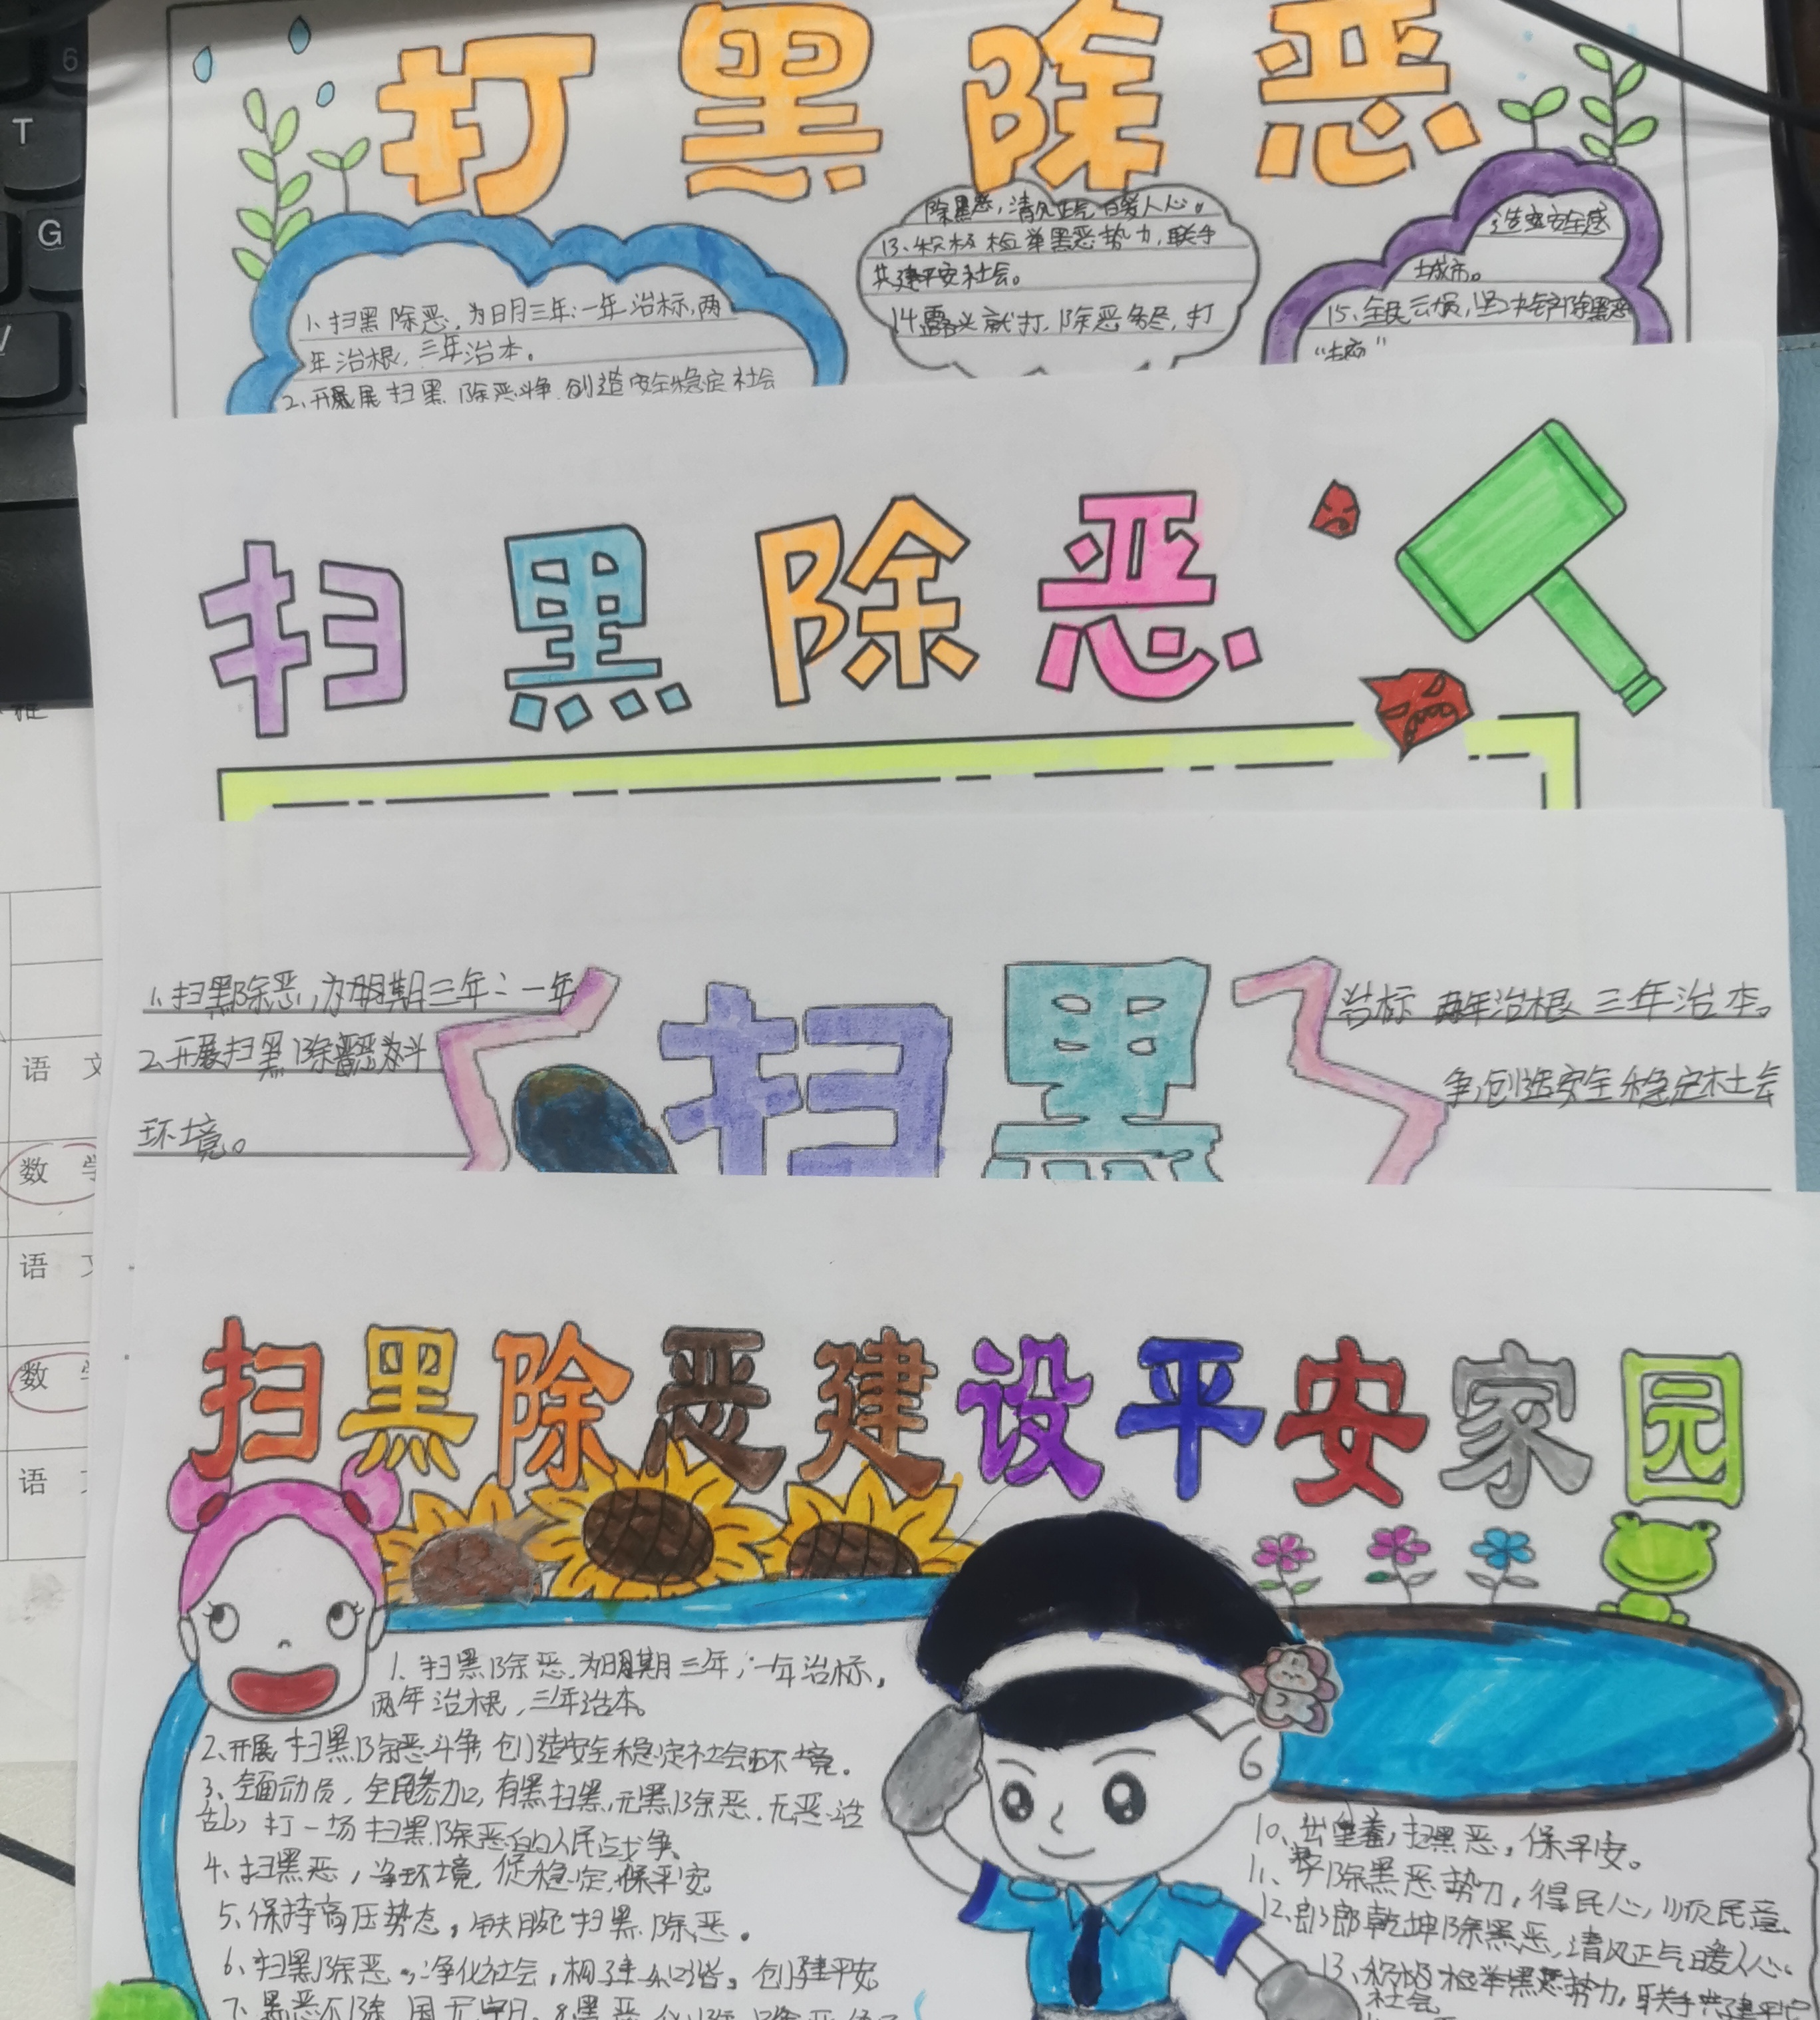 6
T
G
V
打黑除恶
1、扫黑除恶，为日月三年：一年治标，两
年治根，三年治本。
2、开展 扫黑除恶斗争 创造安全稳定社会
除黑恶，清风正气白爱人心。
13、积极检举黑恶势力，联手
共建平安社会。
14露头就打，除恶务尽，打
造业安全感
城市。
15、全民云员，坚决铲除黑恶
扫黑除恶
1、扫黑除恶，为期三年：一年
2、开展扫黑除恶斗
环境。
扫黑
治标 两年治根 三年治本。
争，创造安全稳定社会
语 文
数
语
数
语
扫黑除恶建设平安家园
1、扫黑除恶，为期三年；一年治标，
两年治根，三年治本。
2、开展扫黑除恶斗争，创造安全稳定社会环境。
3、全面动员，全民参加，有黑扫黑，无黑除恶，无恶治
乱，打一场扫黑除恶的人民战争
4、扫黑恶，净环境，促稳定，保平安
5、保持高压势态，铁腕扫黑除恶。
6、扫黑除恶，净化社会，构建和谐。创建平安
7、黑恶不除 国无宁日。8、黑恶
10、出重拳，扫黑恶，保平安。
11、除黑恶势力，得民心，顺民意
12、郎郎乾坤除黑恶，清风正气暖人心。
13、积极检举黑恶势力，联手共建平安
社会